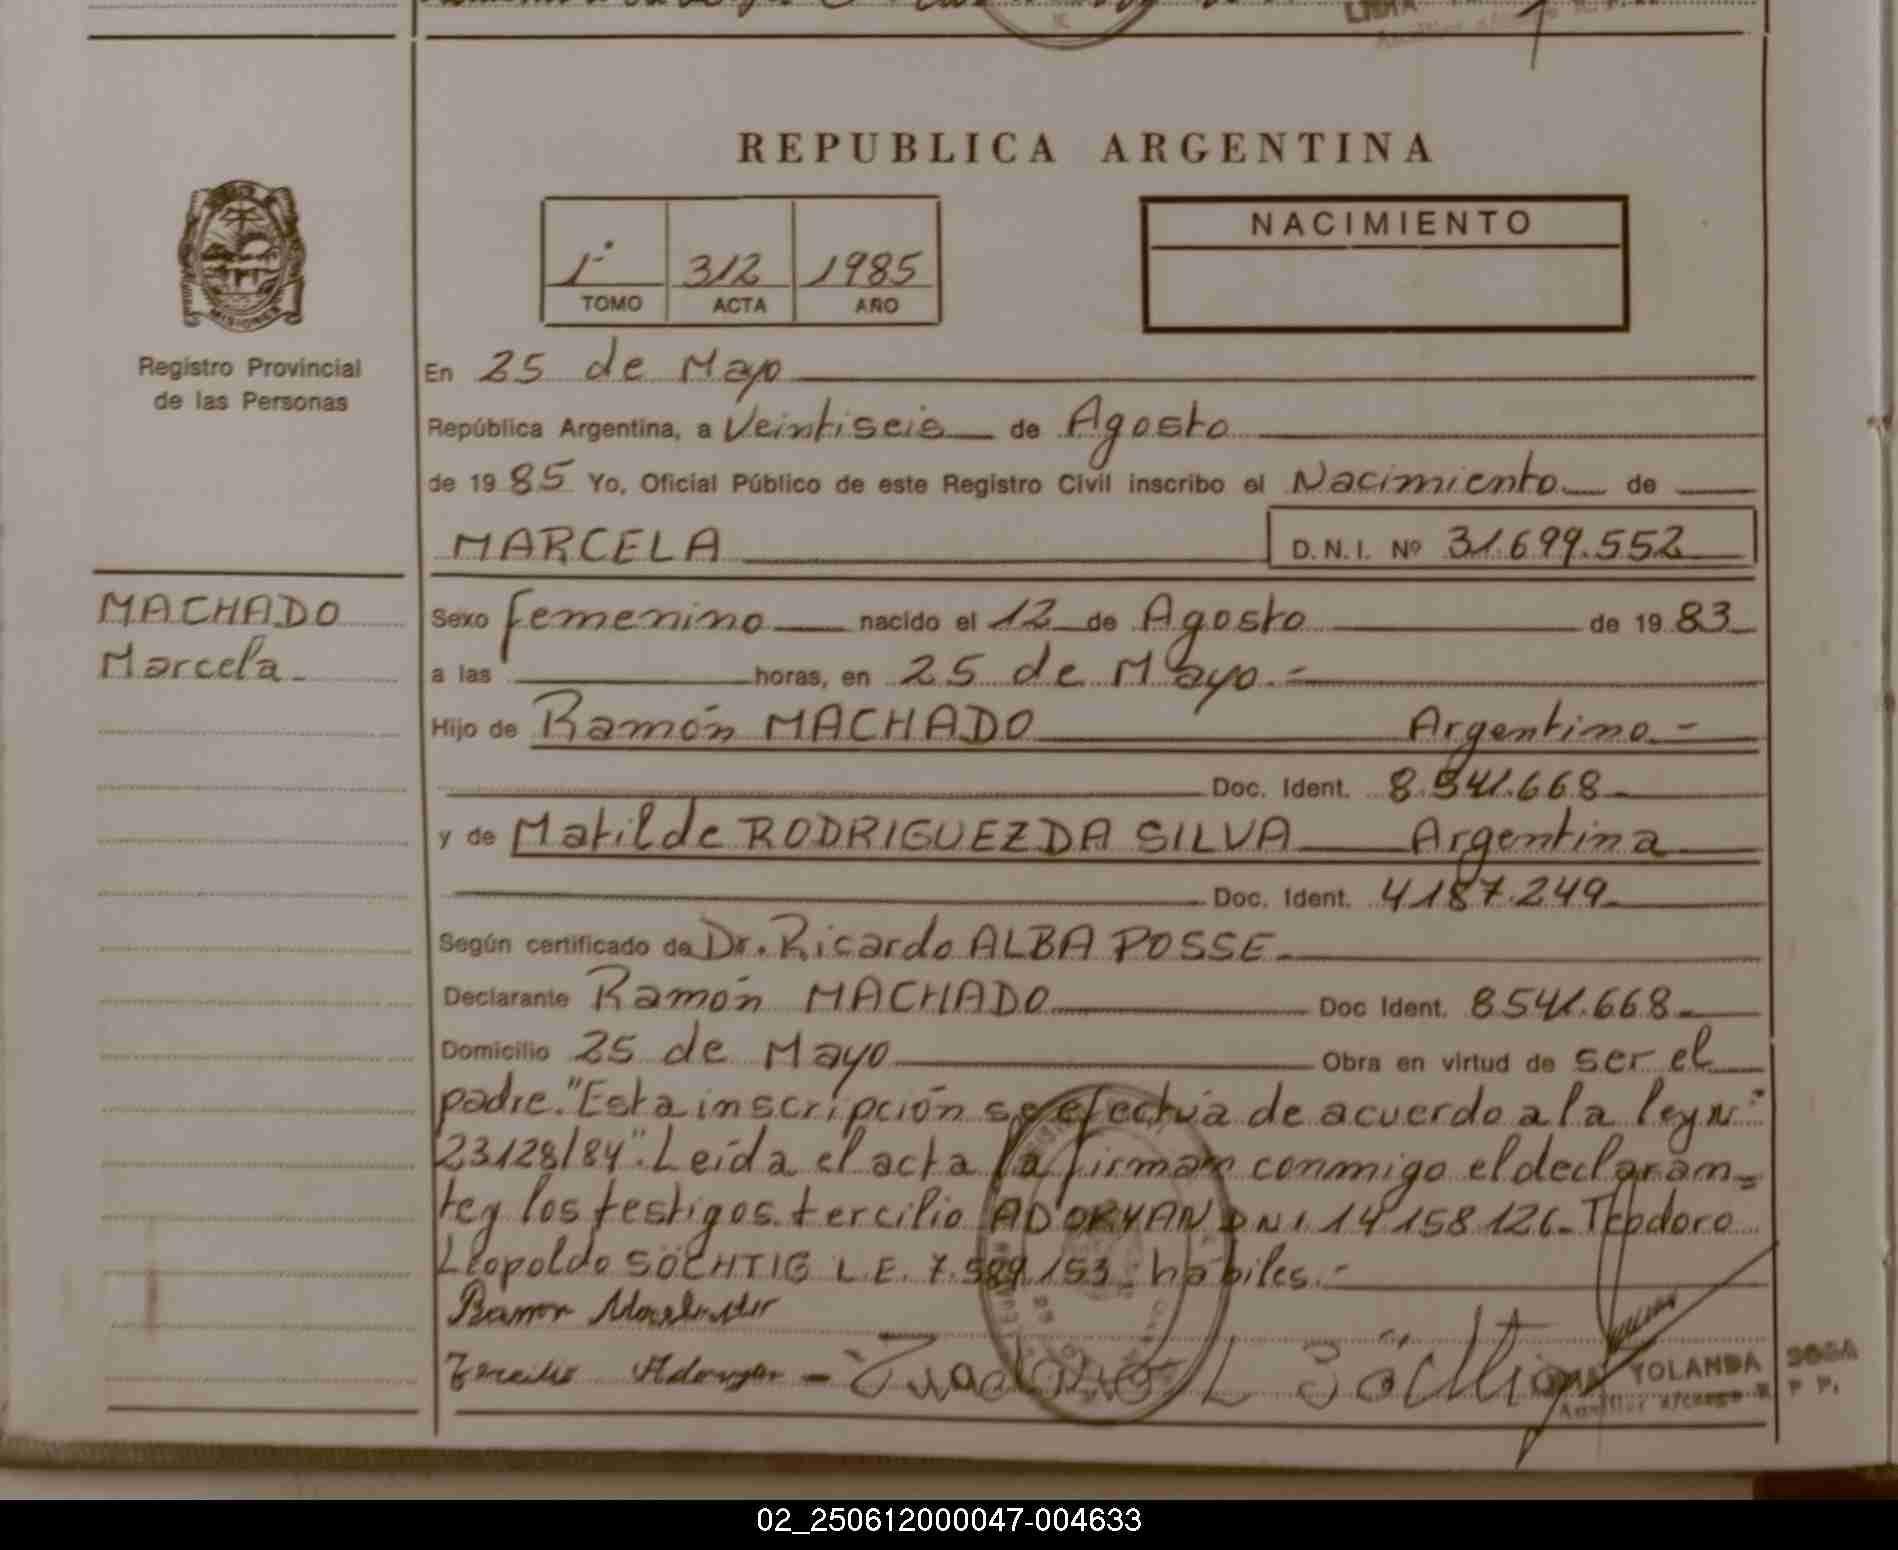 REPUBLICA ARGENTINA
1º 312 1985
TOMO ACTA AÑO
NACIMIENTO
MISIONES
Registro Provincial
de las Personas
En 25 de Mayo
República Argentina, a Veintiseis de Agosto
de 1985 Yo, Oficial Público de este Registro Civil inscribo el Nacimiento de
MARCELA D.N.I. Nº 31.699.552
MACHADO
Marcela
Sexo femenino nacido el 12 de Agosto de 1983
a las horas, en 25 de Mayo.-
Hijo de Ramón MACHADO Argentino.-
Doc. Ident. 8.541.668
y de Matilde RODRIGUEZ DA SILVA Argentina
Doc. Ident. 4187.249
Según certificado de Dr. Ricardo ALBA POSSE
Declarante Ramón MACHADO Doc Ident. 8541.668
Domicilio 25 de Mayo Obra en virtud de ser el
padre. "Esta inscripción se efectúa de acuerdo a la ley Nº
23128/84". Leída el acta la firman conmigo el declaran=
te y los testigos tercilio ADORYAN DNI 14158126- Teodoro
Leopoldo SÖCHTIG L.E. 7.589.153 hábiles.-
Ramon Machado
Tercilio Adoryan - Teodoro L Söchtig
YOLANDA SOSA
Auxiliar a/cargo R P P.
02_250612000047-004633